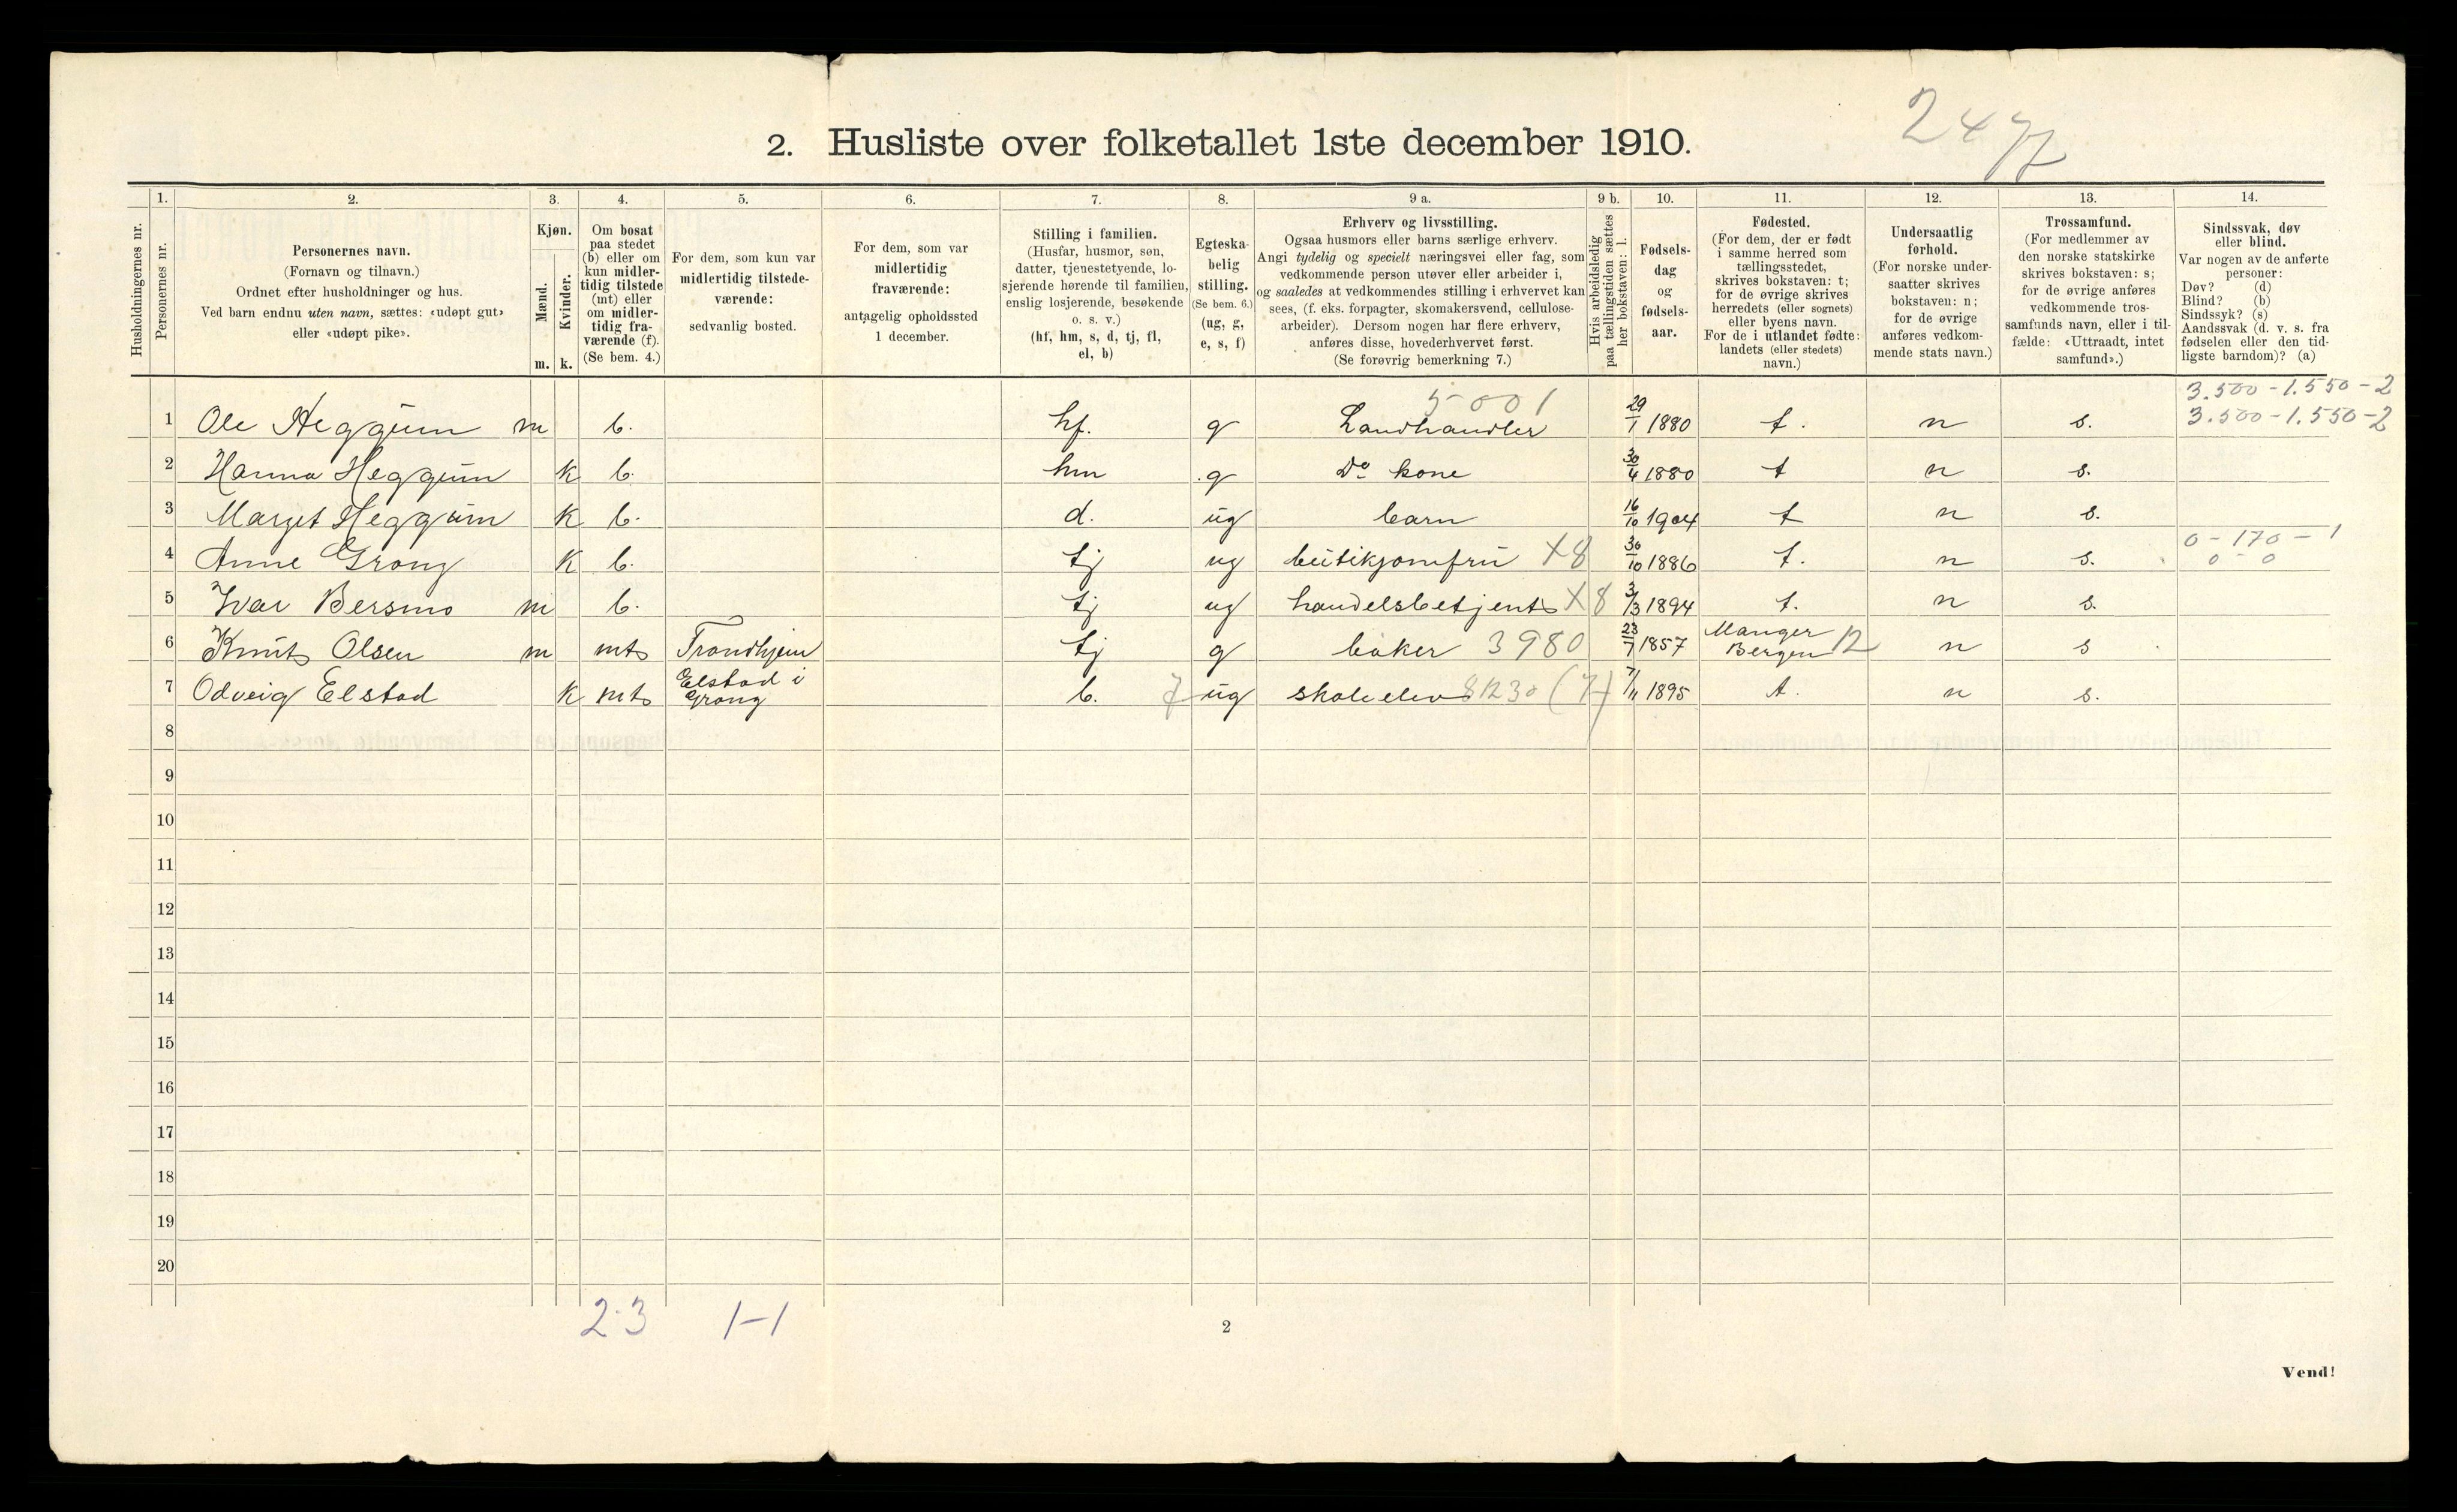 2477
2. Husliste over folketallet 1ste december 1910.
Husholdningernes nr.
1.
Personernes nr.
2.
Personernes navn.
(Fornavn og tilnavn.)
Ordnet efter husholdninger og hus.
Ved barn endnu uten navn, sættes: «udøpt gut»
eller «udøpt pike».
3.
Kjøn.
Mænd.
Kvinder.
m. k.
4.
Om bosat
paa stedet
(b) eller om
kun midler-
tidig tilstede
(mt) eller
om midler-
tidig fra-
værende (f).
(Se bem. 4.)
5.
For dem, som kun var
midlertidig tilstede-
værende:
sedvanlig bosted.
6.
For dem, som var
midlertidig
fraværende:
antagelig opholdssted
1 december.
7.
Stilling i familien.
(Husfar, husmor, søn,
datter, tjenestetyende, lo-
sjerende hørende til familien,
enslig losjerende, besøkende
o. s. v.)
(hf, hm, s, d, tj, fl,
el, b)
8.
Egteska-
belig
stilling.
(Se bem. 6.)
(ug, g,
e, s, f)
9 a.
Erhverv og livsstilling.
Ogsaa husmors eller barns særlige erhverv.
Angi tydelig og specielt næringsvei eller fag, som
vedkommende person utøver eller arbeider i,
og saaledes at vedkommendes stilling i erhvervet kan
sees, (f. eks. forpagter, skomakersvend, cellulose-
arbeider). Dersom nogen har flere erhverv,
anføres disse, hovederhvervet først.
(Se forøvrig bemerkning 7.)
9 b.
Hvis arbeidsledig
paa tællingstiden sættes
her bokstaven: l.
10.
Fødsels-
dag
og
fødsels-
aar.
11.
Fødested.
(For dem, der er født
i samme herred som
tællingsstedet,
skrives bokstaven: t;
for de øvrige skrives
herredets (eller sognets)
eller byens navn.
For de i utlandet fødte:
landets (eller stedets)
navn.)
12.
Undersaatlig
forhold.
(For norske under-
saatter skrives
bokstaven: n;
for de øvrige
anføres vedkom-
mende stats navn.)
13.
Trossamfund.
(For medlemmer av
den norske statskirke
skrives bokstaven: s;
for de øvrige anføres
vedkommende tros-
samfunds navn, eller i til-
fælde: «Uttraadt, intet
samfund».)
14.
Sindssvak, døv
eller blind.
Var nogen av de anførte
personer:
Døv? (d)
Blind? (b)
Sindssyk? (s)
Aandssvak (d. v. s. fra
fødselen eller den tid-
ligste barndom)? (a)
5001 3.500-1.550-2
1 Ole Heggum m b. hf. g Landhandler 29/1 1880 t. n s. 3.500-1.550-2
2 Hanna Heggum k b. hm g Do kone 30/4 1880 t n s.
3 Marget Heggum k b. d. ug barn 16/10 1904 t n s.
4 Anne Grong k b. tj ug butikjomfru X8 30/10 1886 t. n s. 0-170-1
0-0
5 Ivar Bersmo m b. tj ug handelsbetjent X8 3/3 1894 t. n s.
6 Knut Olsen m mt Trondhjem tj g baker 3980 23/7 1857 Manger Bergen 12 n s
7 Odveig Elstad k mt Elstad i Grong b. 7 ug skoleelev 81230 (7) 7/11 1895 t. n s.
8
9
10
11
12
13
14
15
16
17
18
19
20
2-3 1-1
2
Vend!